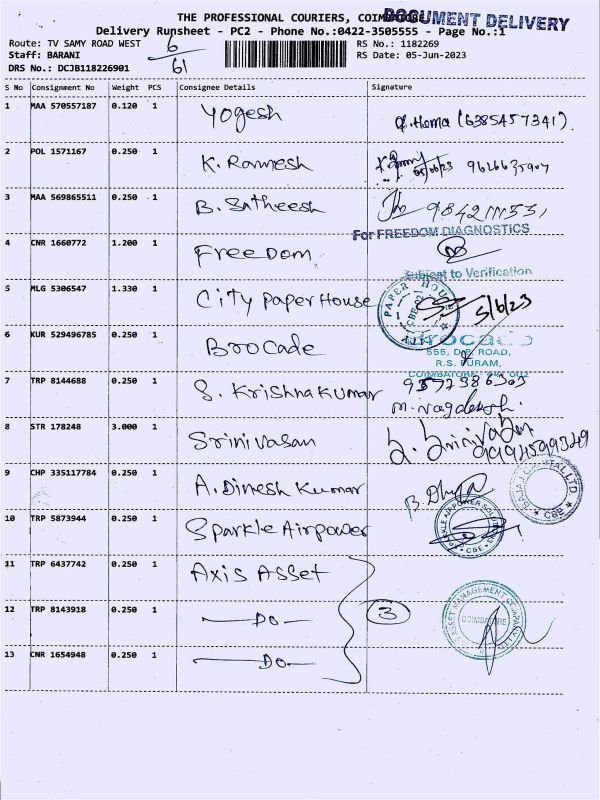 THE PROFESSIONAL COURIERS, COIMBATORE
DOCUMENT DELIVERY
Delivery Runsheet - PC2 - Phone No.:0422-3505555 - Page No.:1
Route: TV SAMY ROAD WEST
6
RS No.: 1182269
Staff: BARANI
61
RS Date: 05-Jun-2023
DRS No.: DCJB118226901
S No Consignment No Weight PCS Consignee Details Signature
1 MAA 570557187 0.120 1 Yogesh Hema (6385457341)
2 POL 1571167 0.250 1 K. Ramesh 05/06/23 9626635907
3 MAA 569865511 0.250 1 B. Satheesh
For FREEDOM DIAGNOSTICS
4 CNR 1660772 1.200 1 Freedom
Subject to Verification
5 MLG 5306547 1.330 1 City Paper House PAPER HOUSE CBE CITY 5/6/23
6 KUR 529496785 0.250 1 Brocade
555, D.B. ROAD,
R.S. PURAM,
COIMBATORE
7 TRP 8144688 0.250 1 S. Krishnakumar
8 STR 178248 3.000 1 Srinivasan S. Srinivasan
9 CHP 335117784 0.250 1 A. Dinesh Kumar CAPITAL LTD CBE
10 TRP 5873944 0.250 1 Sparkle Airpower SPARKLE AIRPOWER CBE
11 TRP 6437742 0.250 1 Axis Asset
12 TRP 8143918 0.250 1 -Do- 3 ASSET MANAGEMENT COMPANY LTD COIMBATORE
13 CNR 1654948 0.250 1 -Do-